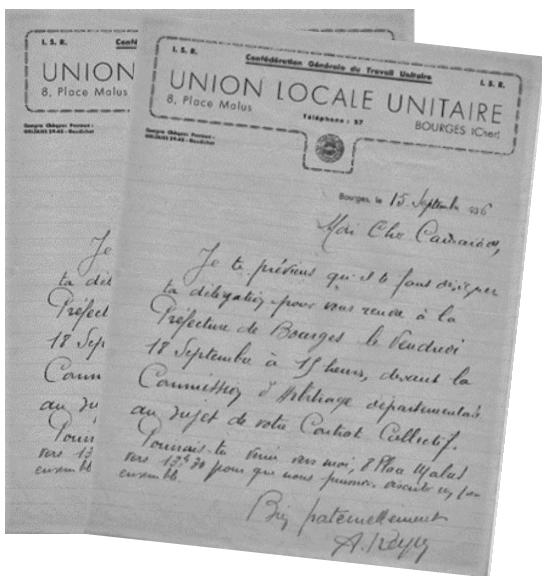 I. S. R.
UNION
8, Place Malus
Compte Chèques Postaux :
Je
ta dél
Préfectu
18 Sep
Comm
au suj
Pourr
vers 13
ensemb
I. S. R.
Confédération Générale du Travail Unitaire
I. S. R.
UNION LOCALE UNITAIRE
8, Place Malus
Téléphone : 57
BOURGES (Cher)
Compte Chèques Postaux :
Bourges, le 15 Septembre 1936
Mon Cher Camarade,
Je te préviens qu'il te faut
ta délégation pour vous rendre à la
Préfecture de Bourges le Vendredi
18 Septembre à 15 heures, devant la
Commission d'Arbitrage départementale
au sujet de votre Contrat Collectif.
Pourrais-tu venir vers moi, 8 Place Malus
vers 13h30 pour que nous puissions discuter un peu
ensemble.
Bien fraternellement